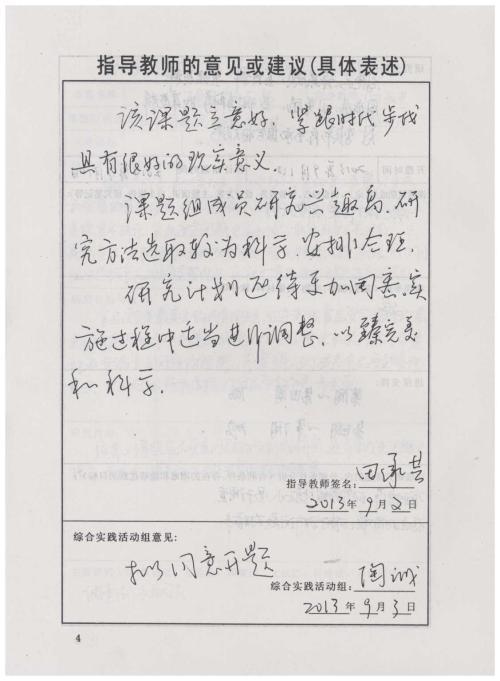 指导教师的意见或建议(具体表述)
该课题立意好，紧跟时代步伐
具有很好的现实意义.
课题组成员研究兴趣高，研
究方法选取较为科学，安排合理.
研究计划还待更加周密，实
施过程中适当进行调整，以臻完美
和科学.
指导教师签名：田承芸
2013年9月2日
综合实践活动组意见：
拟同意开题
综合实践活动组：陶诚
2013年9月3日
4